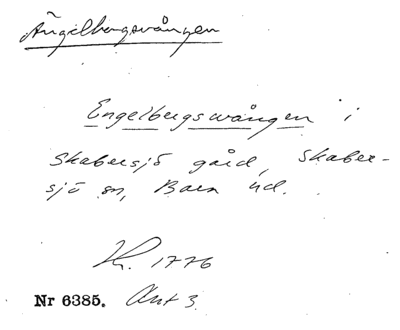 Ängelbergsvången
Engelbergsvången i
Skabersjö gård, Skaber-
sjö sn, Bara hd.
Kr. 1776
Nr 6385. Akt 3